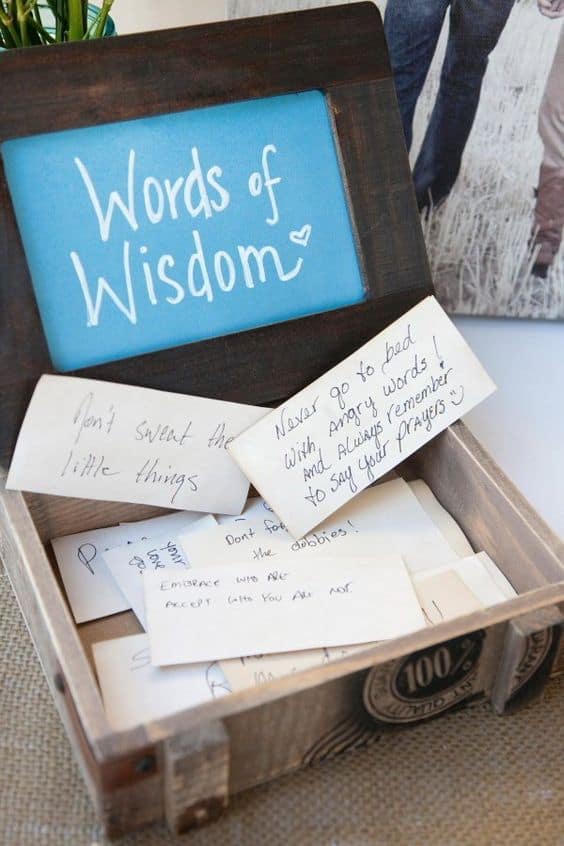 Words of
Wisdom
Never go to bed
with Angry words!
And Always remember
to say your prayers
Don't sweat the
little things
Dont for
the dobbies!
Love your
EMBRACE WHO ARE
ACCEPT WHO YOU ARE NOT.
100%
QUALITY